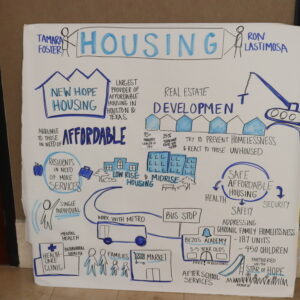 TAMARA
FOSTER
HOUSING
RON
LASTIMOSA
NEW HOPE
HOUSING
LARGEST
PROVIDER OF
AFFORDABLE
HOUSING IN
HOUSTON &
TEXAS
REAL ESTATE
DEVELOPMEN
AVAILABLE
TO THOSE
IN NEED OF
AFFORDABLE
TRY TO PREVENT HOMELESSNESS
& REACT TO THOSE UNHOUSED
RESIDENTS
IN NEED
OF MORE
SERVICES
LOW RISE &
MIDRISE
HOUSING
SAFE
AFFORDABLE
HOUSING
HEALTH
SAFETY
SECURITY
SINGLE
INDIVIDUAL
WORK WITH METRO
BUS STOP
ADDRESSING
CHRONIC FAMILY HOMELESSNESS
187 UNITS
450 CHILDREN
MENTAL
HEALTH
BEHAVIORAL
HEALTH
HEALTH
CARE
CLINIC
FAMILIES
MARKET
ACADEMY
YEAR OLDS
AFTER SCHOOL
SERVICES
PARTNERED
WITH
STAR OF HOPE